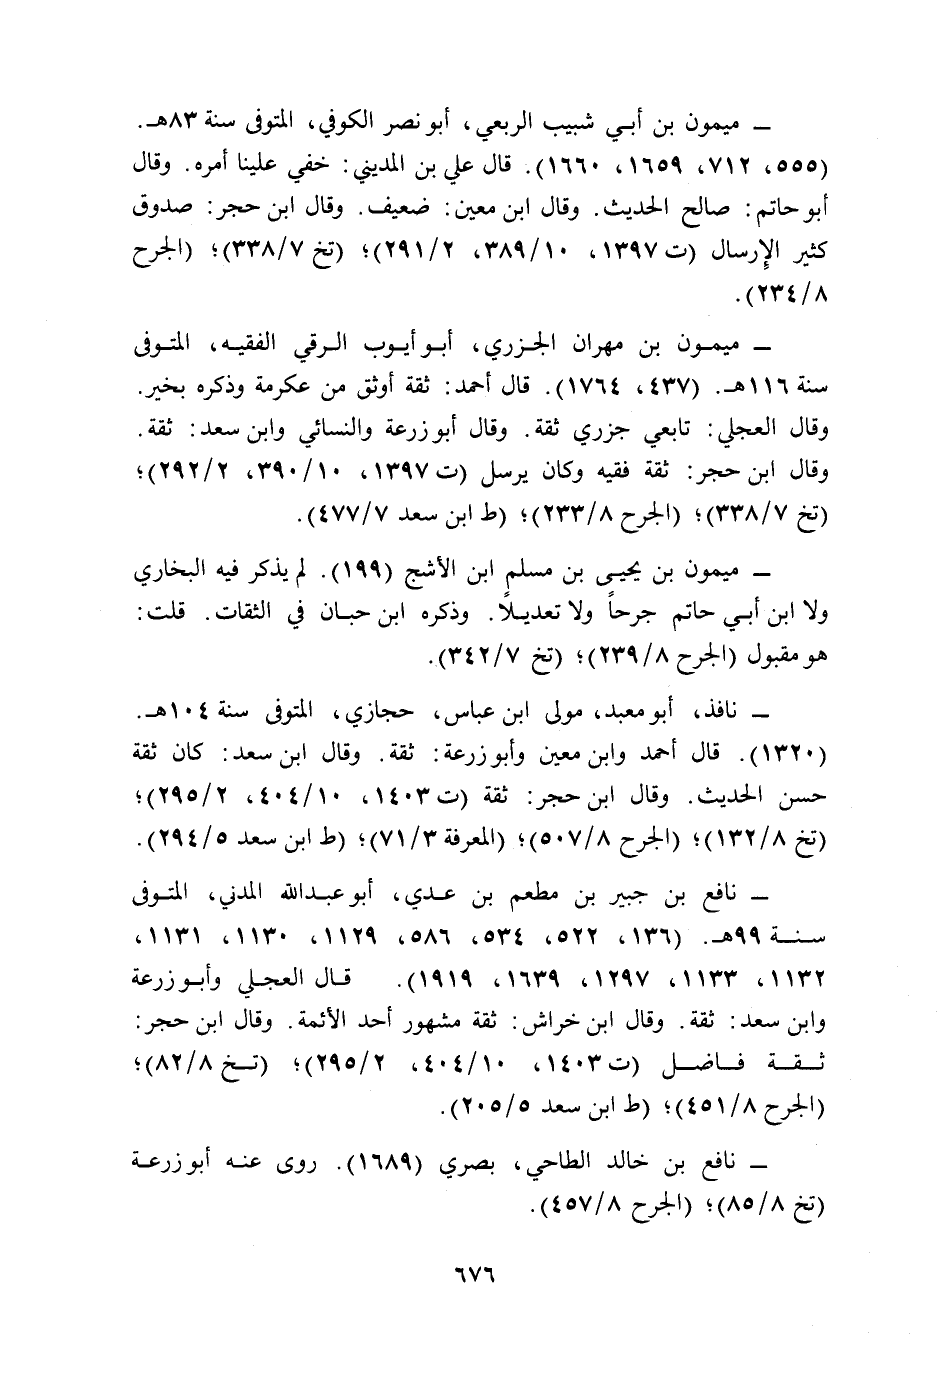 ـ ميمون بن أبـي شبيب الربعي، أبو نصر الكوفي، المتوفى سنة ٨٣هـ.
(٥٥٥، ٧١٢، ١٦٥٩، ١٦٦٠). قال علي بن المديني: خفي علينا أمره. وقال
أبو حاتم: صالح الحديث. وقال ابن معين: ضعيف. وقال ابن حجر: صدوق
كثير الإِرسال (ت ١٣٩٧، ٣٨٩/١٠، ٢٩١/٢)؛ (تخ ٣٣٨/٧)؛ (الجرح
٢٣٤/٨).
ـ ميمـون بن مهران الجـزري، أبـو أيـوب الـرقي الفقيـه، المتـوفى
سنة ١١٦هـ. (٤٣٧، ١٧٦٤). قال أحمد: ثقة أوثق من عكرمة وذكره بخير.
وقال العجلي: تابعي جزري ثقة. وقال أبو زرعة والنسائي وابن سعد: ثقة.
وقال ابن حجر: ثقة فقيه وكان يرسل (ت ١٣٩٧، ٣٩٠/١٠، ٢٩٢/٢)؛
(تخ ٣٣٨/٧)؛ (الجرح ٢٣٣/٨)؛ (ط ابن سعد ٤٧٧/٧).
ـ ميمون بن يحيـى بن مسلم ابن الأشج (١٩٩). لم يذكر فيه البخاري
ولا ابن أبـي حاتم جرحاً ولا تعديـلاً. وذكره ابن حبـان في الثقات. قلت:
هو مقبول (الجرح ٢٣٩/٨)؛ (تخ ٣٤٢/٧).
ـ نافذ، أبو معبد، مولى ابن عباس، حجازي، المتوفى سنة ١٠٤هـ.
(١٣٢٠). قال أحمد وابن معين وأبو زرعة: ثقة. وقال ابن سعد: كان ثقة
حسن الحديث. وقال ابن حجر: ثقة (ت ١٤٠٣، ٤٠٤/١٠، ٢٩٥/٢)؛
(تخ ١٣٢/٨)؛ (الجرح ٥٠٧/٨)؛ (المعرفة ٧١/٣)؛ (ط ابن سعد ٢٩٤/٥).
ـ نافع بن جبير بن مطعم بن عـدي، أبو عبـدالله المدني، المتـوفى
سـنـة ٩٩هـ. (١٣٦، ٥٢٢، ٥٣٤، ٥٨٦، ١١٢٩، ١١٣٠، ١١٣١،
١١٣٢، ١١٣٣، ١٢٩٧، ١٦٣٩، ١٩١٩). قـال العجـلي وأبـو زرعة
وابن سعد: ثقة. وقال ابن خراش: ثقة مشهور أحد الأئمة. وقال ابن حجر:
ثـقـة فـاضـل (ت ١٤٠٣، ٤٠٤/١٠، ٢٩٥/٢)؛ (تـخ ٨٢/٨)؛
(الجرح ٤٥١/٨)؛ (ط ابن سعد ٢٠٥/٥).
ـ نافع بن خالد الطاحي، بصري (١٦٨٩). روى عنـه أبو زرعـة
(تخ ٨٥/٨)؛ (الجرح ٤٥٧/٨).
٦٧٦